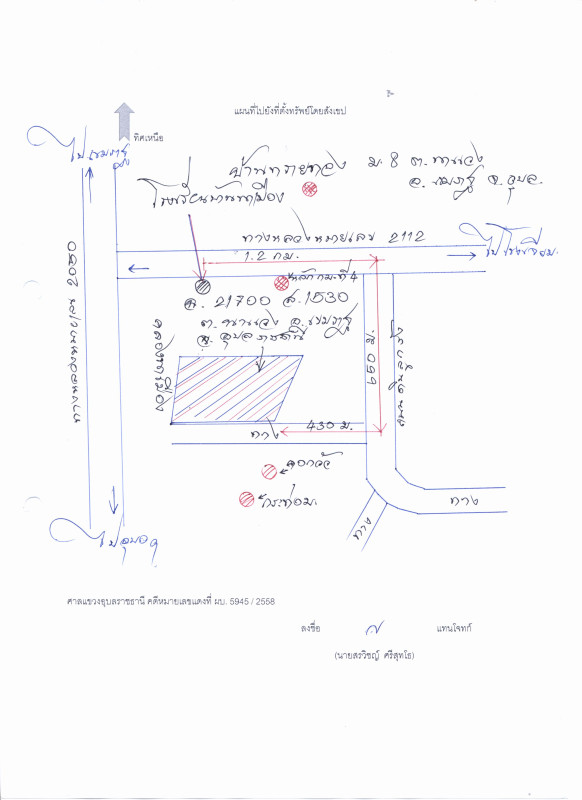 แผนที่ไปยังที่ตั้งทรัพย์โดยสังเขป
ทิศเหนือ
ไปเขมราฐ
บ้านทรายทอง ม.8 ต.
อ.เขมราฐ จ.อุบล.
ทางหลวงหมายเลข 2112
ไปโขงเจียม
1.2 กม.
หลัก กม.ที่ 4
ฉ. 21700 ล.1530
อ.เขมราฐ
จ.อุบลราชธานี
650 ม.
430 ม.
ทาง
คอกวัว
กระท่อม
ทาง
ทาง
ไปอุบลฯ
ศาลแขวงอุบลราชธานี คดีหมายเลขแดงที่ ผบ. 5945 / 2558
ลงชื่อ
แทนโจทก์
(นายสรวิชญ์ ศรีสุทโธ)